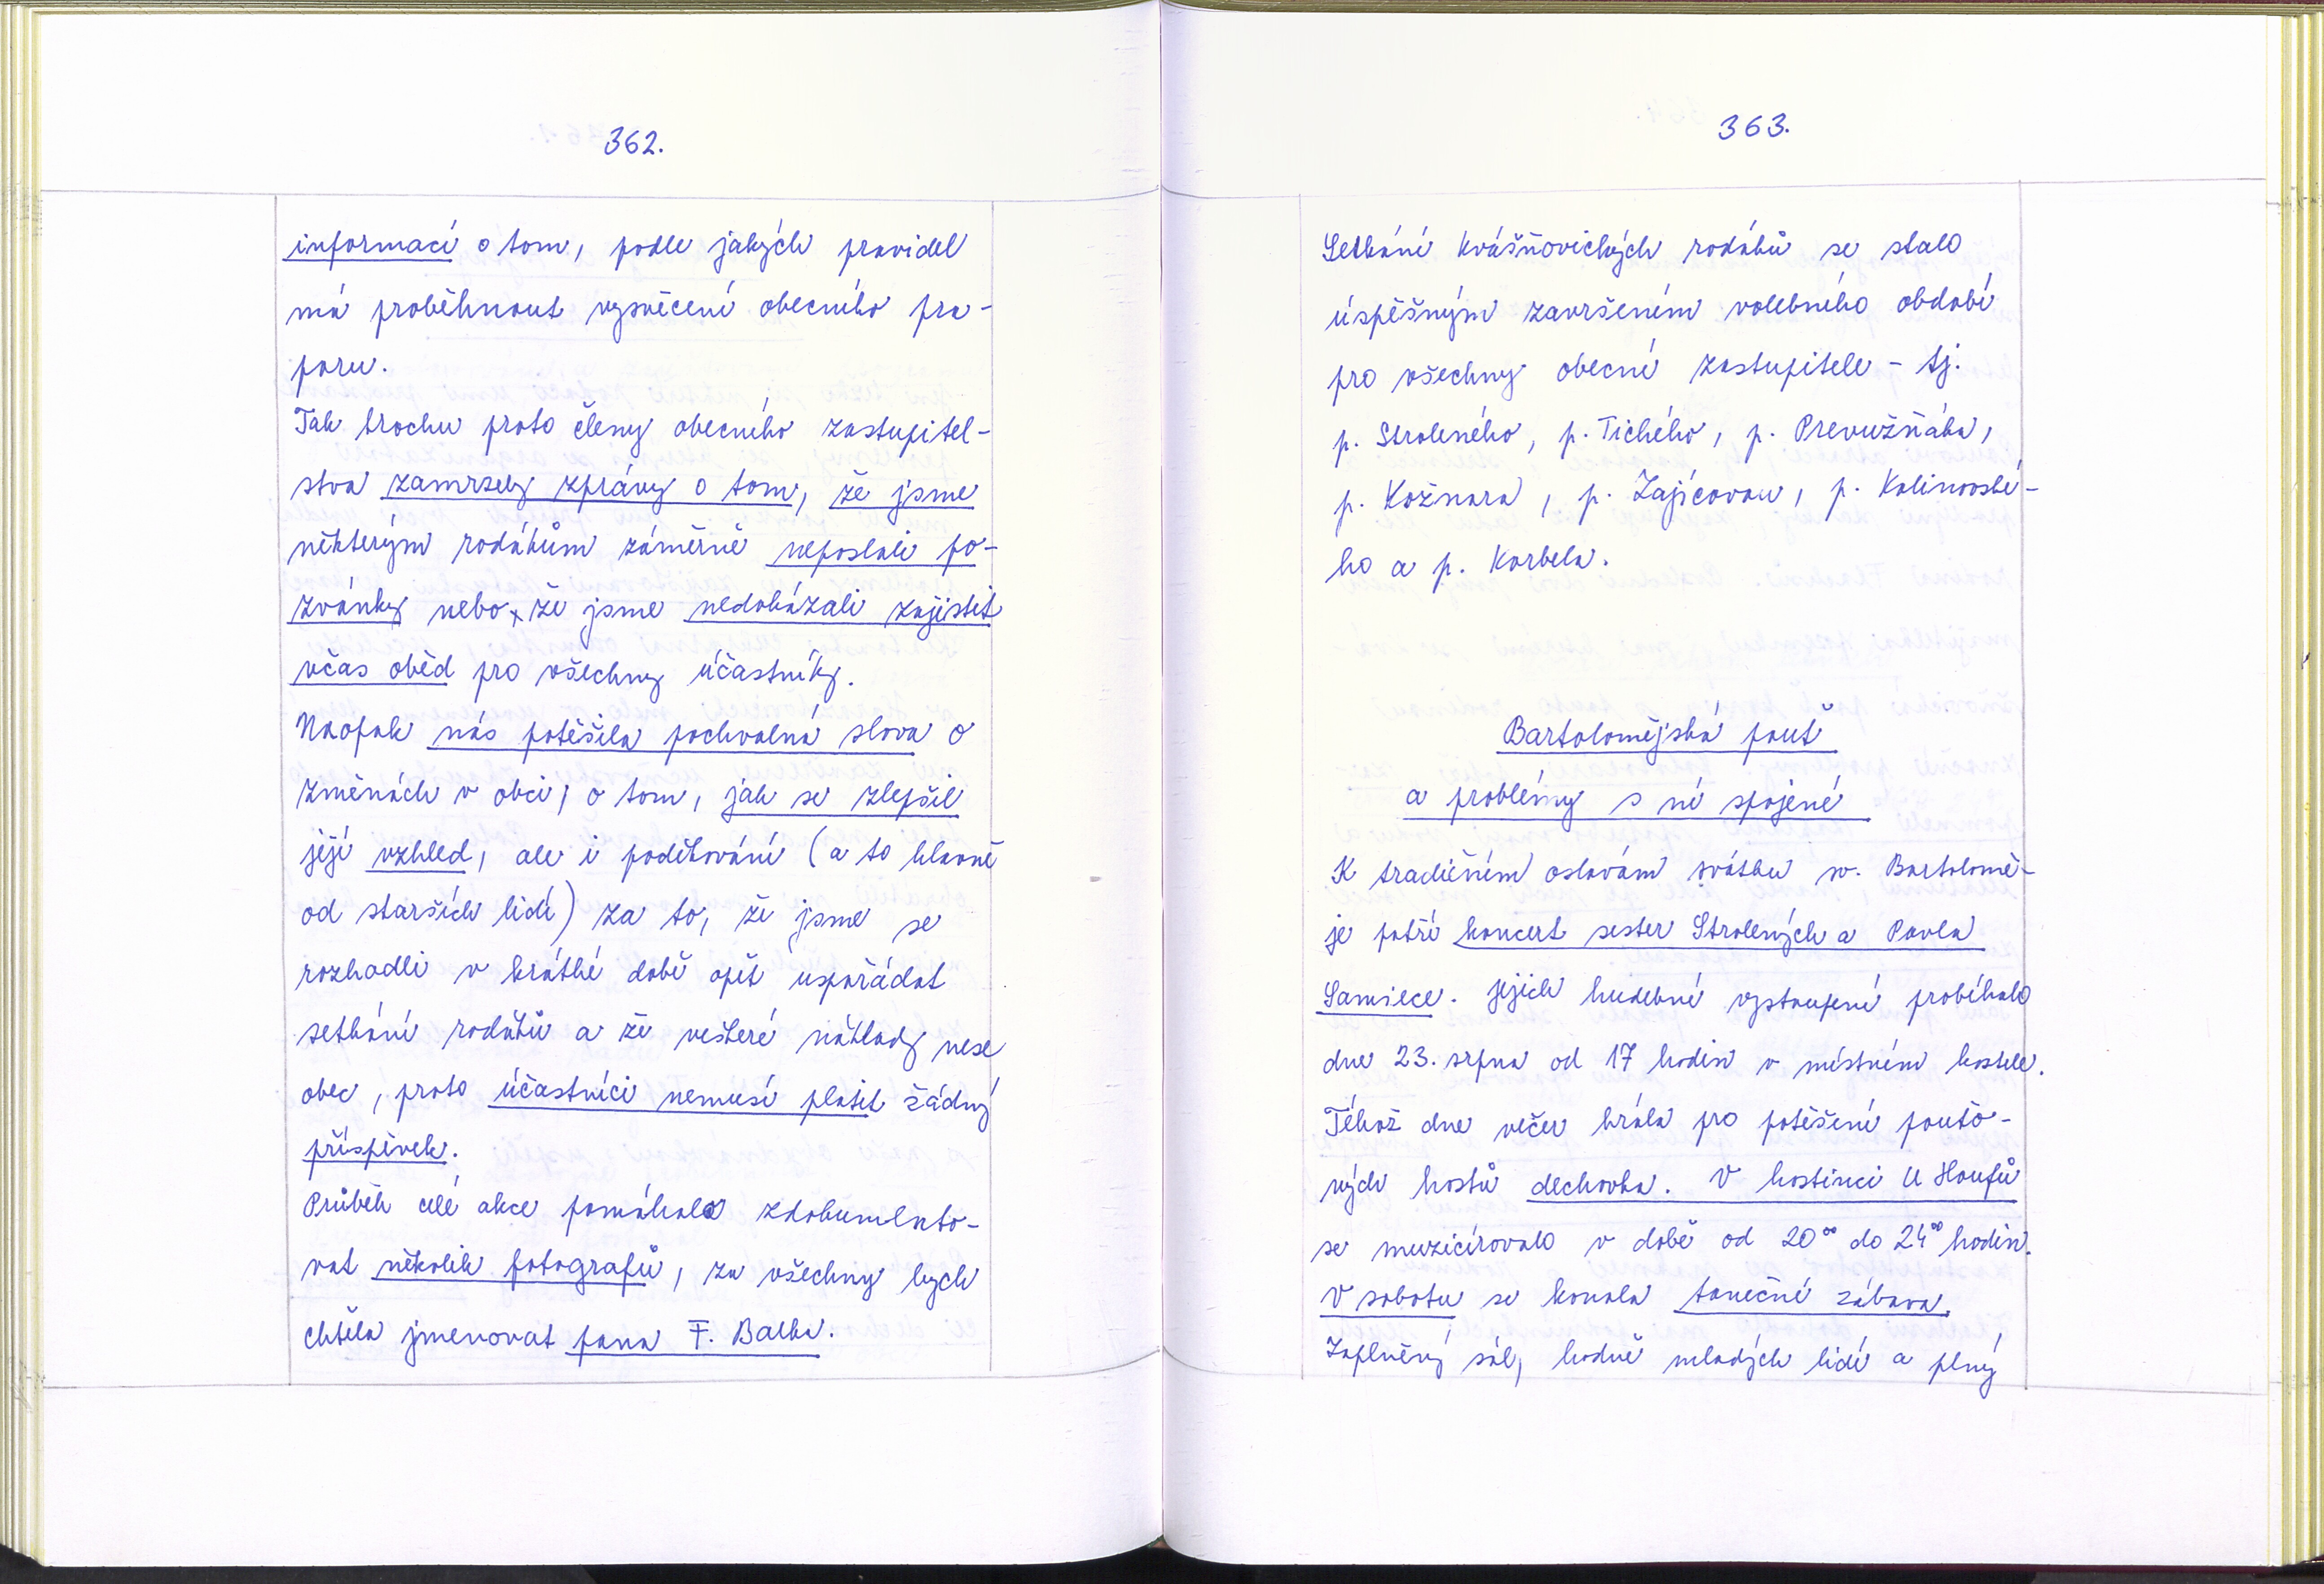 362.
informací o tom, podle jakých pravidel
má proběhnout vysvěcení obecního pra-
poru.
Tak trochu proto členy obecního zastupitel-
stva zamrzely zprávy o tom, že jsme
některým rodákům záměrně neposlali po-
zvánky nebo, že jsme nedokázali zajistit
včas oběd pro všechny účastníky.
Naopak nás potěšila pochvalná slova o
změnách v obci, o tom, jak se zlepšil
její vzhled, ale i poděkování (a to hlavně
od starších lidí) za to, že jsme se
rozhodli v krátké době opět uspořádat
setkání rodáků a že veškeré náklady nese
obec, proto účastníci nemusí platit žádný
příspěvek.
Průběh celé akce pomáhalo zdokumento-
vat několik fotografů, za všechny bych
chtěla jmenovat pana F. Balka.
363.
Setkání kvášňovických rodáků se stalo
úspěšným završením volebního období
pro všechny obecní zastupitele - tj.
p. Stroleného, p. Tichého, p. Prevužňáka,
p. Kožnara, p. Zajícovou, p. Kalinovské-
ho a p. Korbela.
Bartolomějská pouť
a problémy s ní spojené
K tradičním oslavám svátku sv. Bartolomě-
je patří koncert sester Strolených a Pavla
Samiece. Jejich hudební vystoupení probíhalo
dne 23. srpna od 17 hodin v místním kostele.
Téhož dne večer hrála pro potěšení pouťo-
vých hostů dechovka. V hostinci U Houfů
se muzicírovalo v době od 20⁰⁰ do 24⁰⁰ hodin.
V sobotu se konala taneční zábava.
Zaplněný sál, hodně mladých lidí a plný